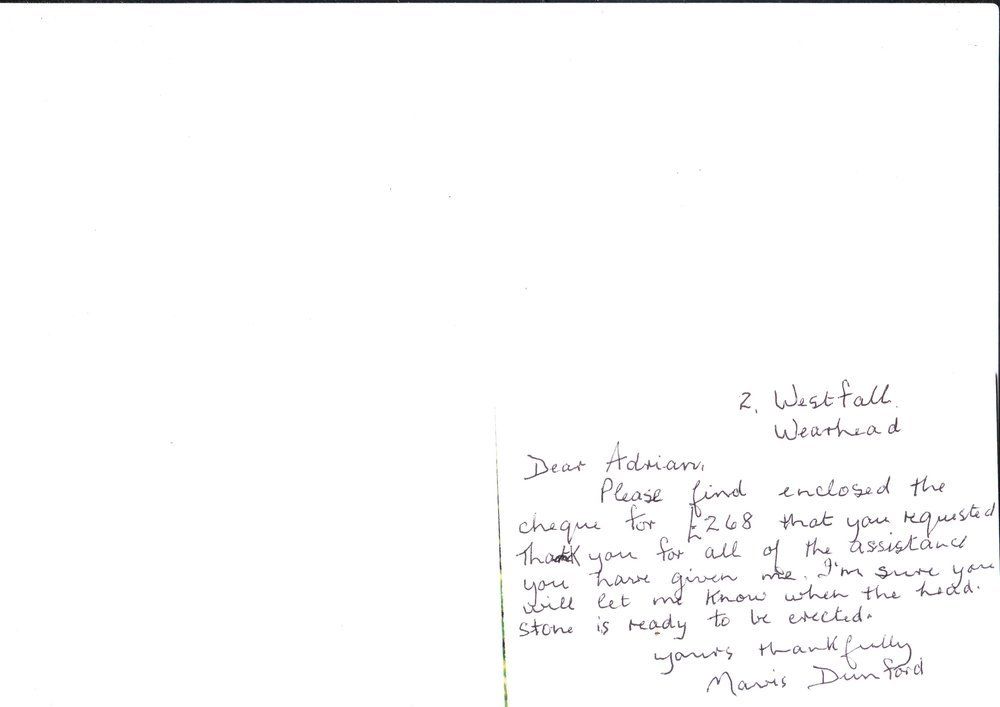 2, Westfall
Wearhead
Dear Adrian,
Please find enclosed the
cheque for £268 that you requested
thank you for all of the assistance
you have given me. I'm sure you
will let me know when the head.
stone is ready to be erected.
yours thankfully
Mavis Dunford